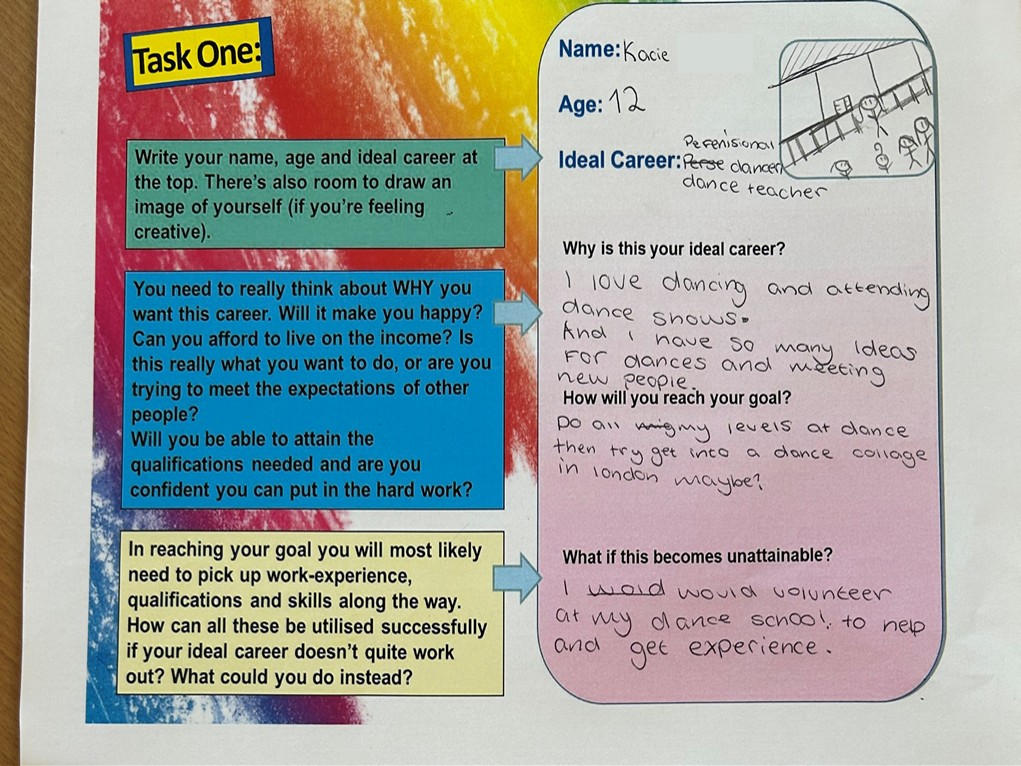 Task One:
Name: Kacie
Age: 12
Perfenisional
Ideal Career: Perse dancer/
dance teacher
Write your name, age and ideal career at
the top. There's also room to draw an
image of yourself (if you're feeling
creative).
Why is this your ideal career?
I love dancing and attending
dance shows.
And I have so many Ideas
For dances and meeting
new people.
You need to really think about WHY you
want this career. Will it make you happy?
Can you afford to live on the income? Is
this really what you want to do, or are you
trying to meet the expectations of other
people?
Will you be able to attain the
qualifications needed and are you
confident you can put in the hard work?
How will you reach your goal?
Do all my levels at dance
then try get into a dance collage
in london maybe?
In reaching your goal you will most likely
need to pick up work-experience,
qualifications and skills along the way.
How can all these be utilised successfully
if your ideal career doesn't quite work
out? What could you do instead?
What if this becomes unattainable?
I wold would volunteer
at my dance school. to help
and get experience.